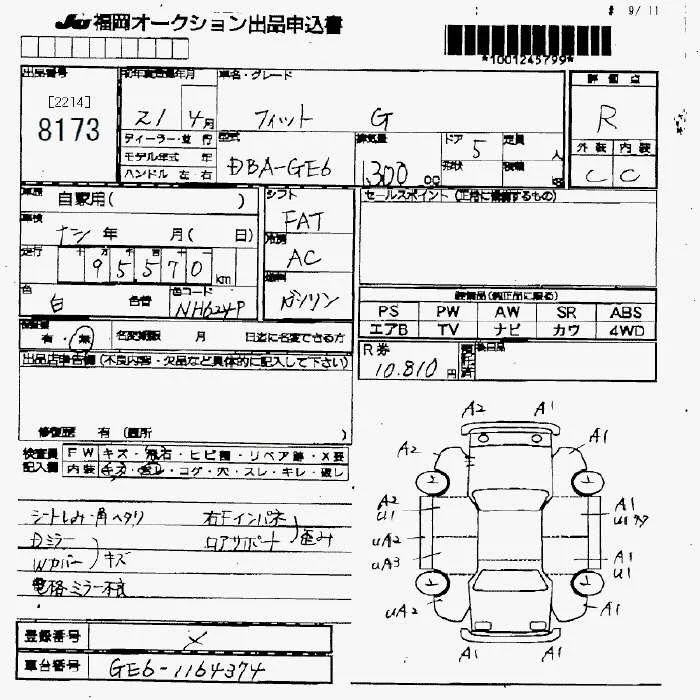 JU 福岡オークション出品申込書
# 9/11
*1001245799*
出品番号
[2214]
8173
初年度登録年月
21 4月
ディーラー・並行
モデル年式 年
ハンドル 左・右
車名・グレード
フィット G
型式
DBA-GE6
排気量
1300 cc
ドア 5
形状
定員 人
積載 kg
評価点
R
外装 内装
C C
車歴
自家用( )
車検
ナシ 年 月( 日)
走行
十 万 千 百 十
95570 km
色
白 色替
色コード
NH624P
シフト
FAT
冷房
AC
燃料
ガソリン
セールスポイント (正常に機能するもの)
装備品(純正品に限る)
PS PW AW SR ABS
エアB TV ナビ カワ 4WD
有・無 名変期限 月 日迄に名変できる方
R券
10.810 円
出品店申告欄 (不良内容・欠品など具体的に記入して下さい)
修復歴 有 (箇所 )
検査員記入欄
FW キズ・飛石・ヒビ割・リペア跡・X要
内装 キズ・汚レ・コゲ・穴・スレ・キレ・破レ
シートしみ・角ヘタリ
Dミラー
Wカバー キズ
電格ミラー不良
右Fインパネ
ロアサポート 歪み
A2 A1
A2 A1
A2 U1 A1 U1
UA2
UA3 A1 U1
UA2 A1
A1 A1
登録番号 X
車台番号 GE6-1164374